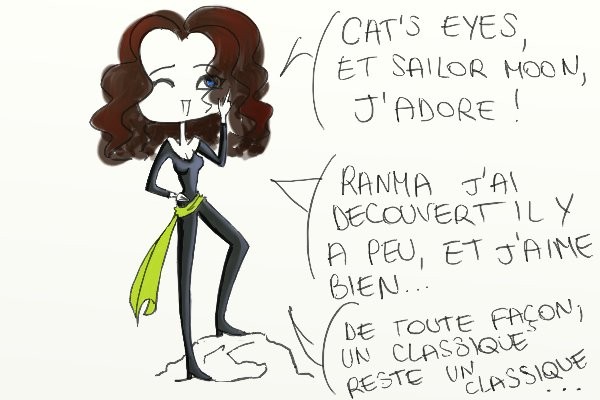 CAT'S EYES,
ET SAILOR MOON,
J'ADORE !
RANMA J'AI
DECOUVERT IL Y
A PEU, ET J'AIME
BIEN...
DE TOUTE FAÇON,
UN CLASSIQUE
RESTE UN CLASSIQUE...